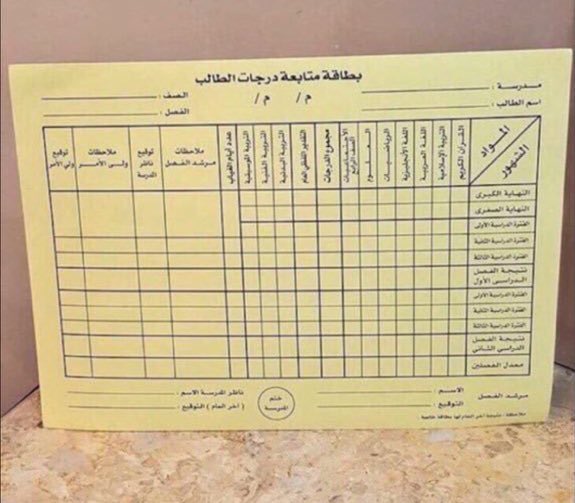 بطاقة متابعة درجات الطالب
مدرسة :
الصف :
م / م /
اسم الطالب :
الفصل :
المواد
الشهور
القرآن الكريم
التربية الإسلامية
اللغة العربية
اللغة الأنجليزية
الرياضيات
العلوم
الأجتماعيات الصف الرابع
مجموع الدرجات
التقدير اللفظي العام
التربية البدنية
التربية الفنية
التربية الموسيقية
عدد أيام الغياب
ملاحظات مرشد الفصل
توقيع ناظر المدرسة
ملاحظات ولي الأمر
توقيع ولي الأمر
النهاية الكبرى
النهاية الصغرى
الفترة الدراسية الأولى
الفترة الدراسية الثانية
الفترة الدراسية الثالثة
نتيجة الفصل
الدراسي الأول
الفترة الدراسية الأولى
الفترة الدراسية الثانية
الفترة الدراسية الثالثة
نتيجة الفصل
الدراسي الثاني
معدل الفصلين
مرشد الفصل
الاسم :
التوقيع :
ختم
المدرسة
ناظر المدرسة الاسم :
( آخر العام ) التوقيع :
ملاحظة : نتيجة آخر العام لها بطاقة خاصة